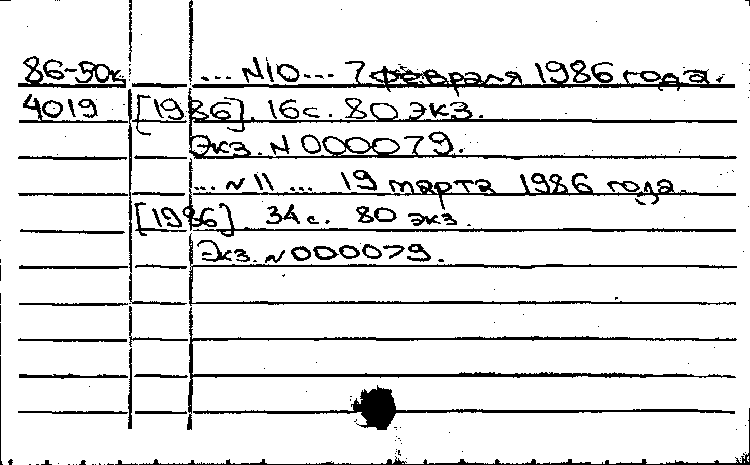 86-50к ... N10 ... 7 февраля 1986 года.
4019 [1986]. 16с. 80 экз.
Экз. N 000079.
... N 11 ... 19 марта 1986 года.
[1986]. 34 с. 80 экз.
Экз. N 000079.